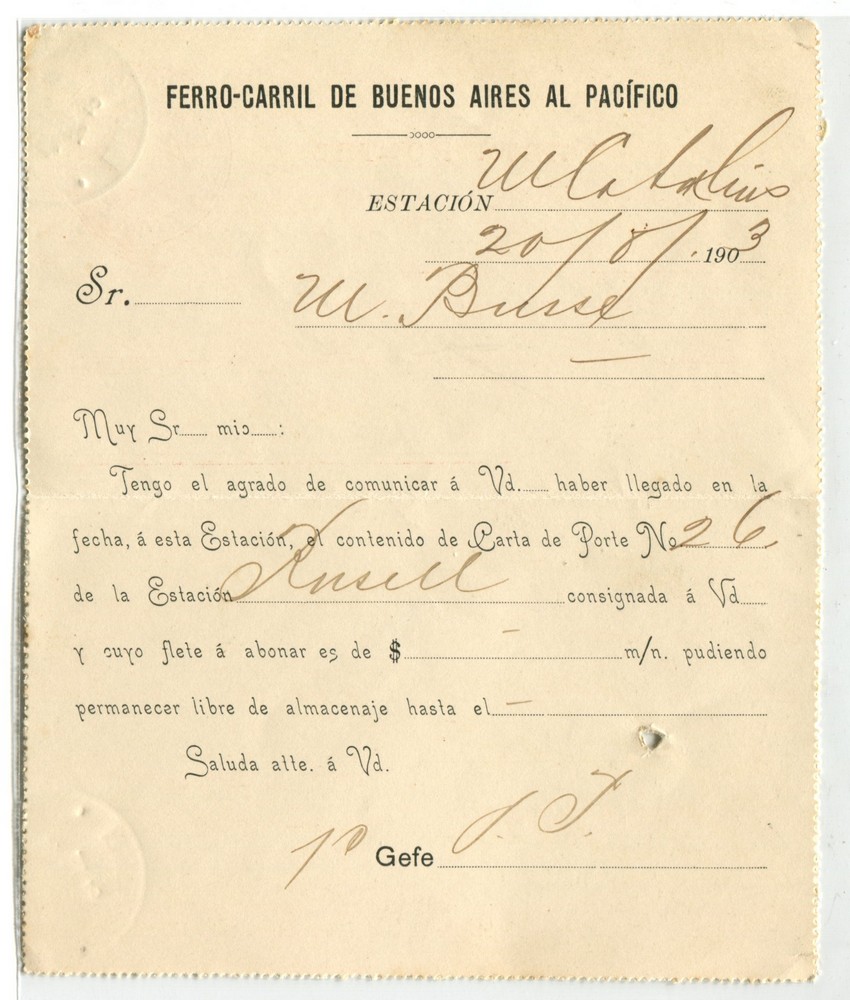 FERRO-CARRIL DE BUENOS AIRES AL PACÍFICO
ESTACIÓN M Catalins
20/8/.1903
Sr. M. Busse
Muy Sr mio :
Tengo el agrado de comunicar á Vd. haber llegado en la
fecha, á esta Estación, el contenido de Carta de Porte No 26
de la Estación Rusell consignada á Vd
y cuyo flete á abonar es de $ — m/n. pudiendo
permanecer libre de almacenaje hasta el —
Saluda atte. á Vd.
pº Gefe J. F.